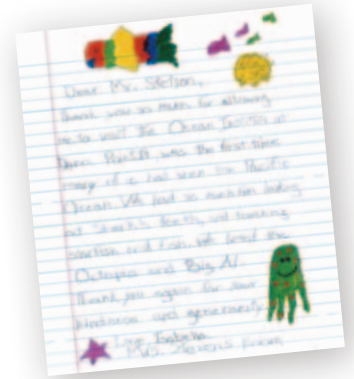 Dear Mr. Stetson,
Thank you so much for allowing
me to visit the Ocean Institute at
Dana Point. It was the first time
many of us had seen the Pacific
Ocean. We had so much fun looking
at teeth, and touching
and fish. We loved the
Octopus and Big Al.
Thank you again for your
kindness and generosity.
Love, Isabella
Mrs. Room